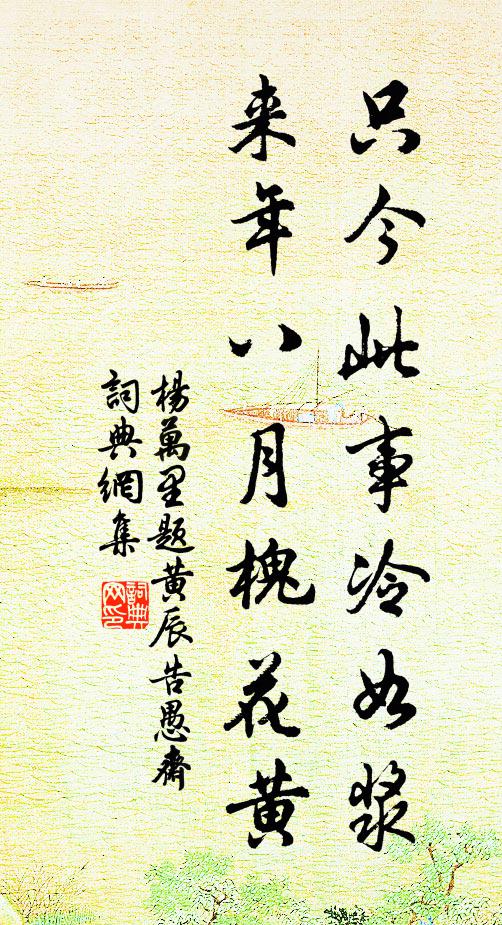 只今此事冷如漿
来年八月槐花黄
楊萬里題黄辰告愚齋
詞典網集
詞典
网印